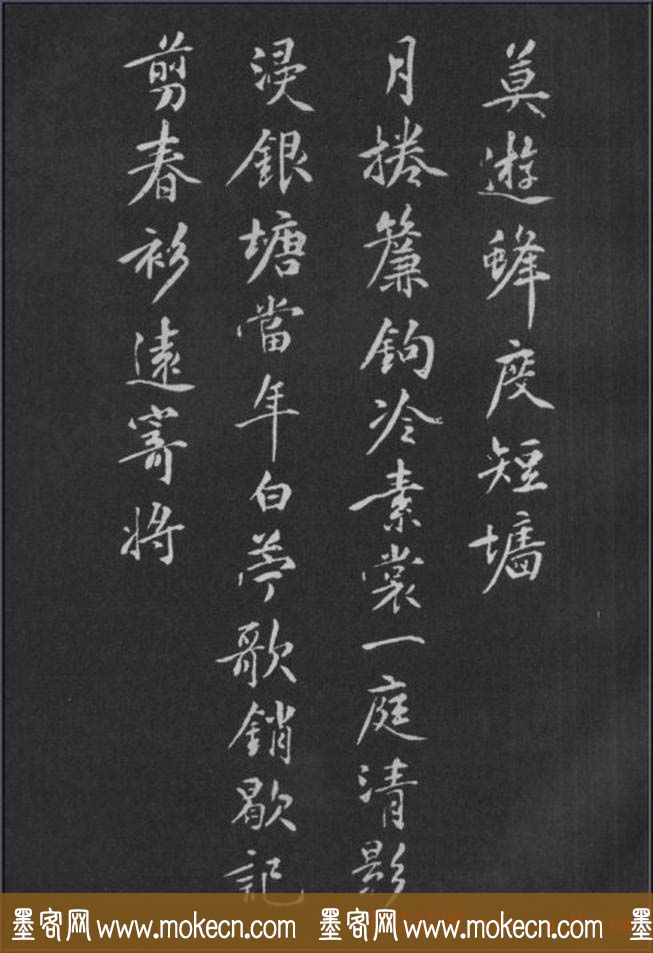 莫遊蜂度短墻
月捲簾鉤冷素裳一庭清影
浸銀塘當年白苧歌銷歇記
剪春衫遠寄將
墨客网 www.mokecn.com 墨客网 www.mokecn.com